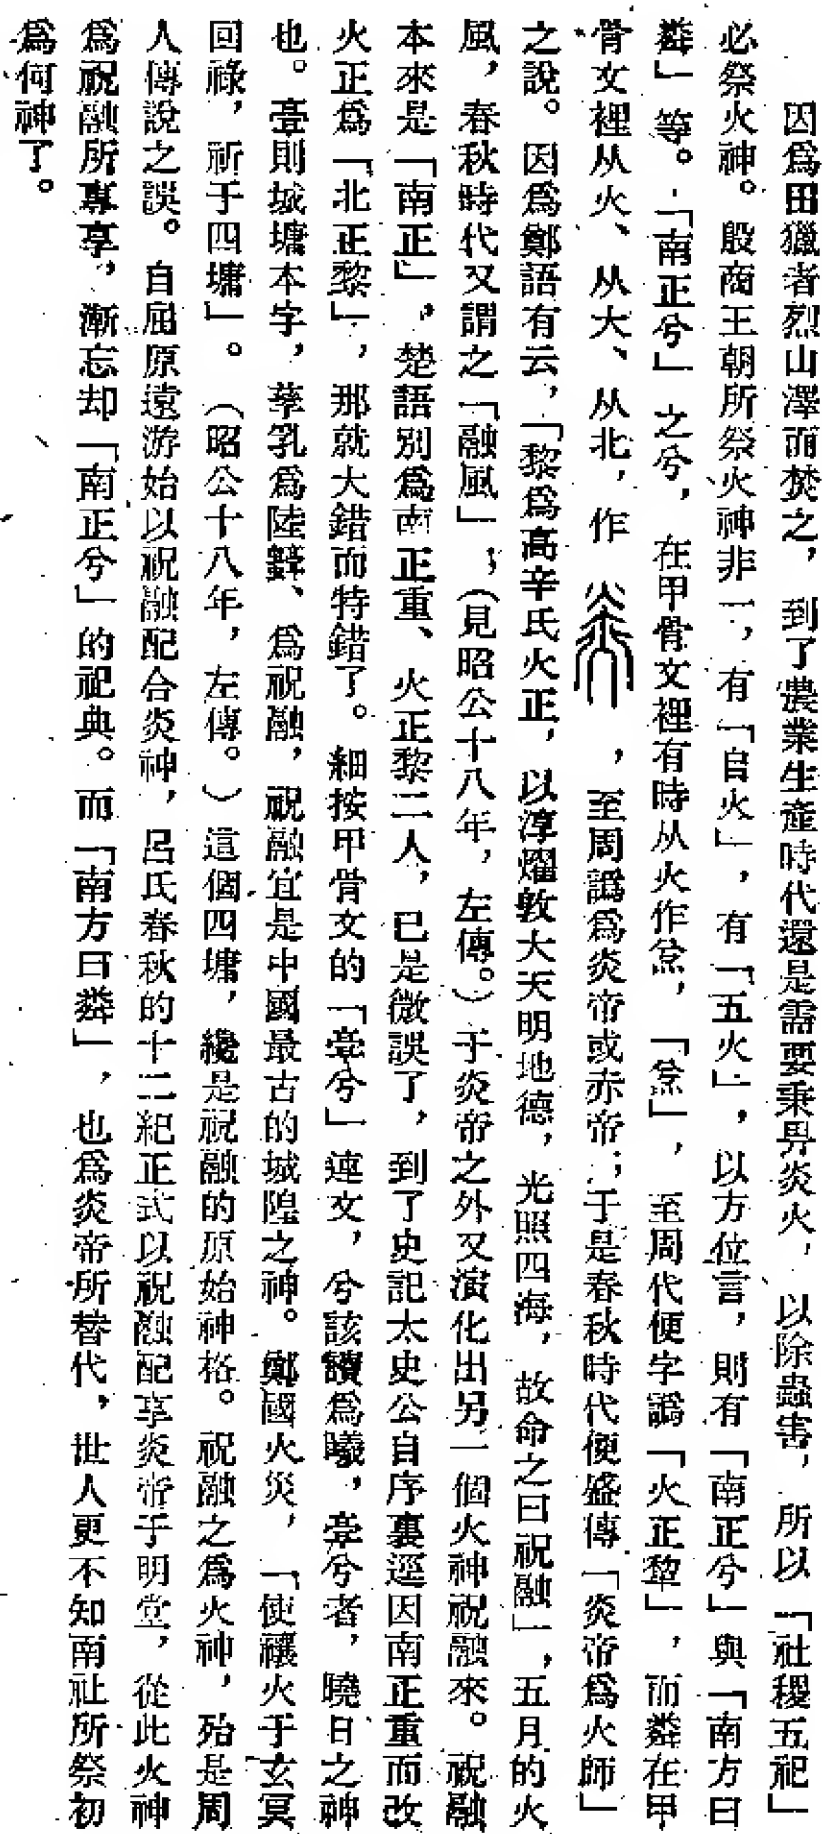 因爲田獵者烈山澤而焚之，到了農業生產時代還是需要秉畀炎火，以除蟲害，所以「社稷五祀」
必祭火神。殷商王朝所祭火神非一，有「自火」，有「五火」，以方位言，則有「南正兮」與「南方曰
粦」等。「南正兮」之兮，在甲骨文裡有時从火作炃，「炃」，至周代便字譌「火正犂」，而粦在甲
骨文裡从火、从大、从北，作，至周譌爲炎帝或赤帝；于是春秋時代便盛傳「炎帝爲火師」
之說。因爲鄭語有云，「黎爲高辛氏火正，以淳燿敦大天明地德，光照四海，故命之曰祝融」，五月的火
風，春秋時代又謂之「融風」，（見昭公十八年，左傳。）于炎帝之外又演化出另一個火神祝融來。祝融
本來是「南正」，楚語別爲南正重、火正黎二人，已是微誤了，到了史記太史公自序裏逕因南正重而改
火正爲「北正黎」，那就大錯而特錯了。細按甲骨文的「𦎫兮」連文，兮該讀爲曦，𦎫兮者，曉日之神
也。𦎫則城墉本字，孳乳爲陸、爲祝融，祝融宜是中國最古的城隍之神。鄭國火災，「使禳火于玄冥
回祿，祈于四墉」。（昭公十八年，左傳。）這個四墉，纔是祝融的原始神格。祝融之爲火神，殆是周
人傳說之誤。自屈原遠游始以祝融配合炎神，呂氏春秋的十二紀正式以祝融配享炎帝于明堂，從此火神
爲祝融所專享，漸忘却「南正兮」的祀典。而「南方曰粦」，也爲炎帝所替代，世人更不知南社所祭初
爲何神了。